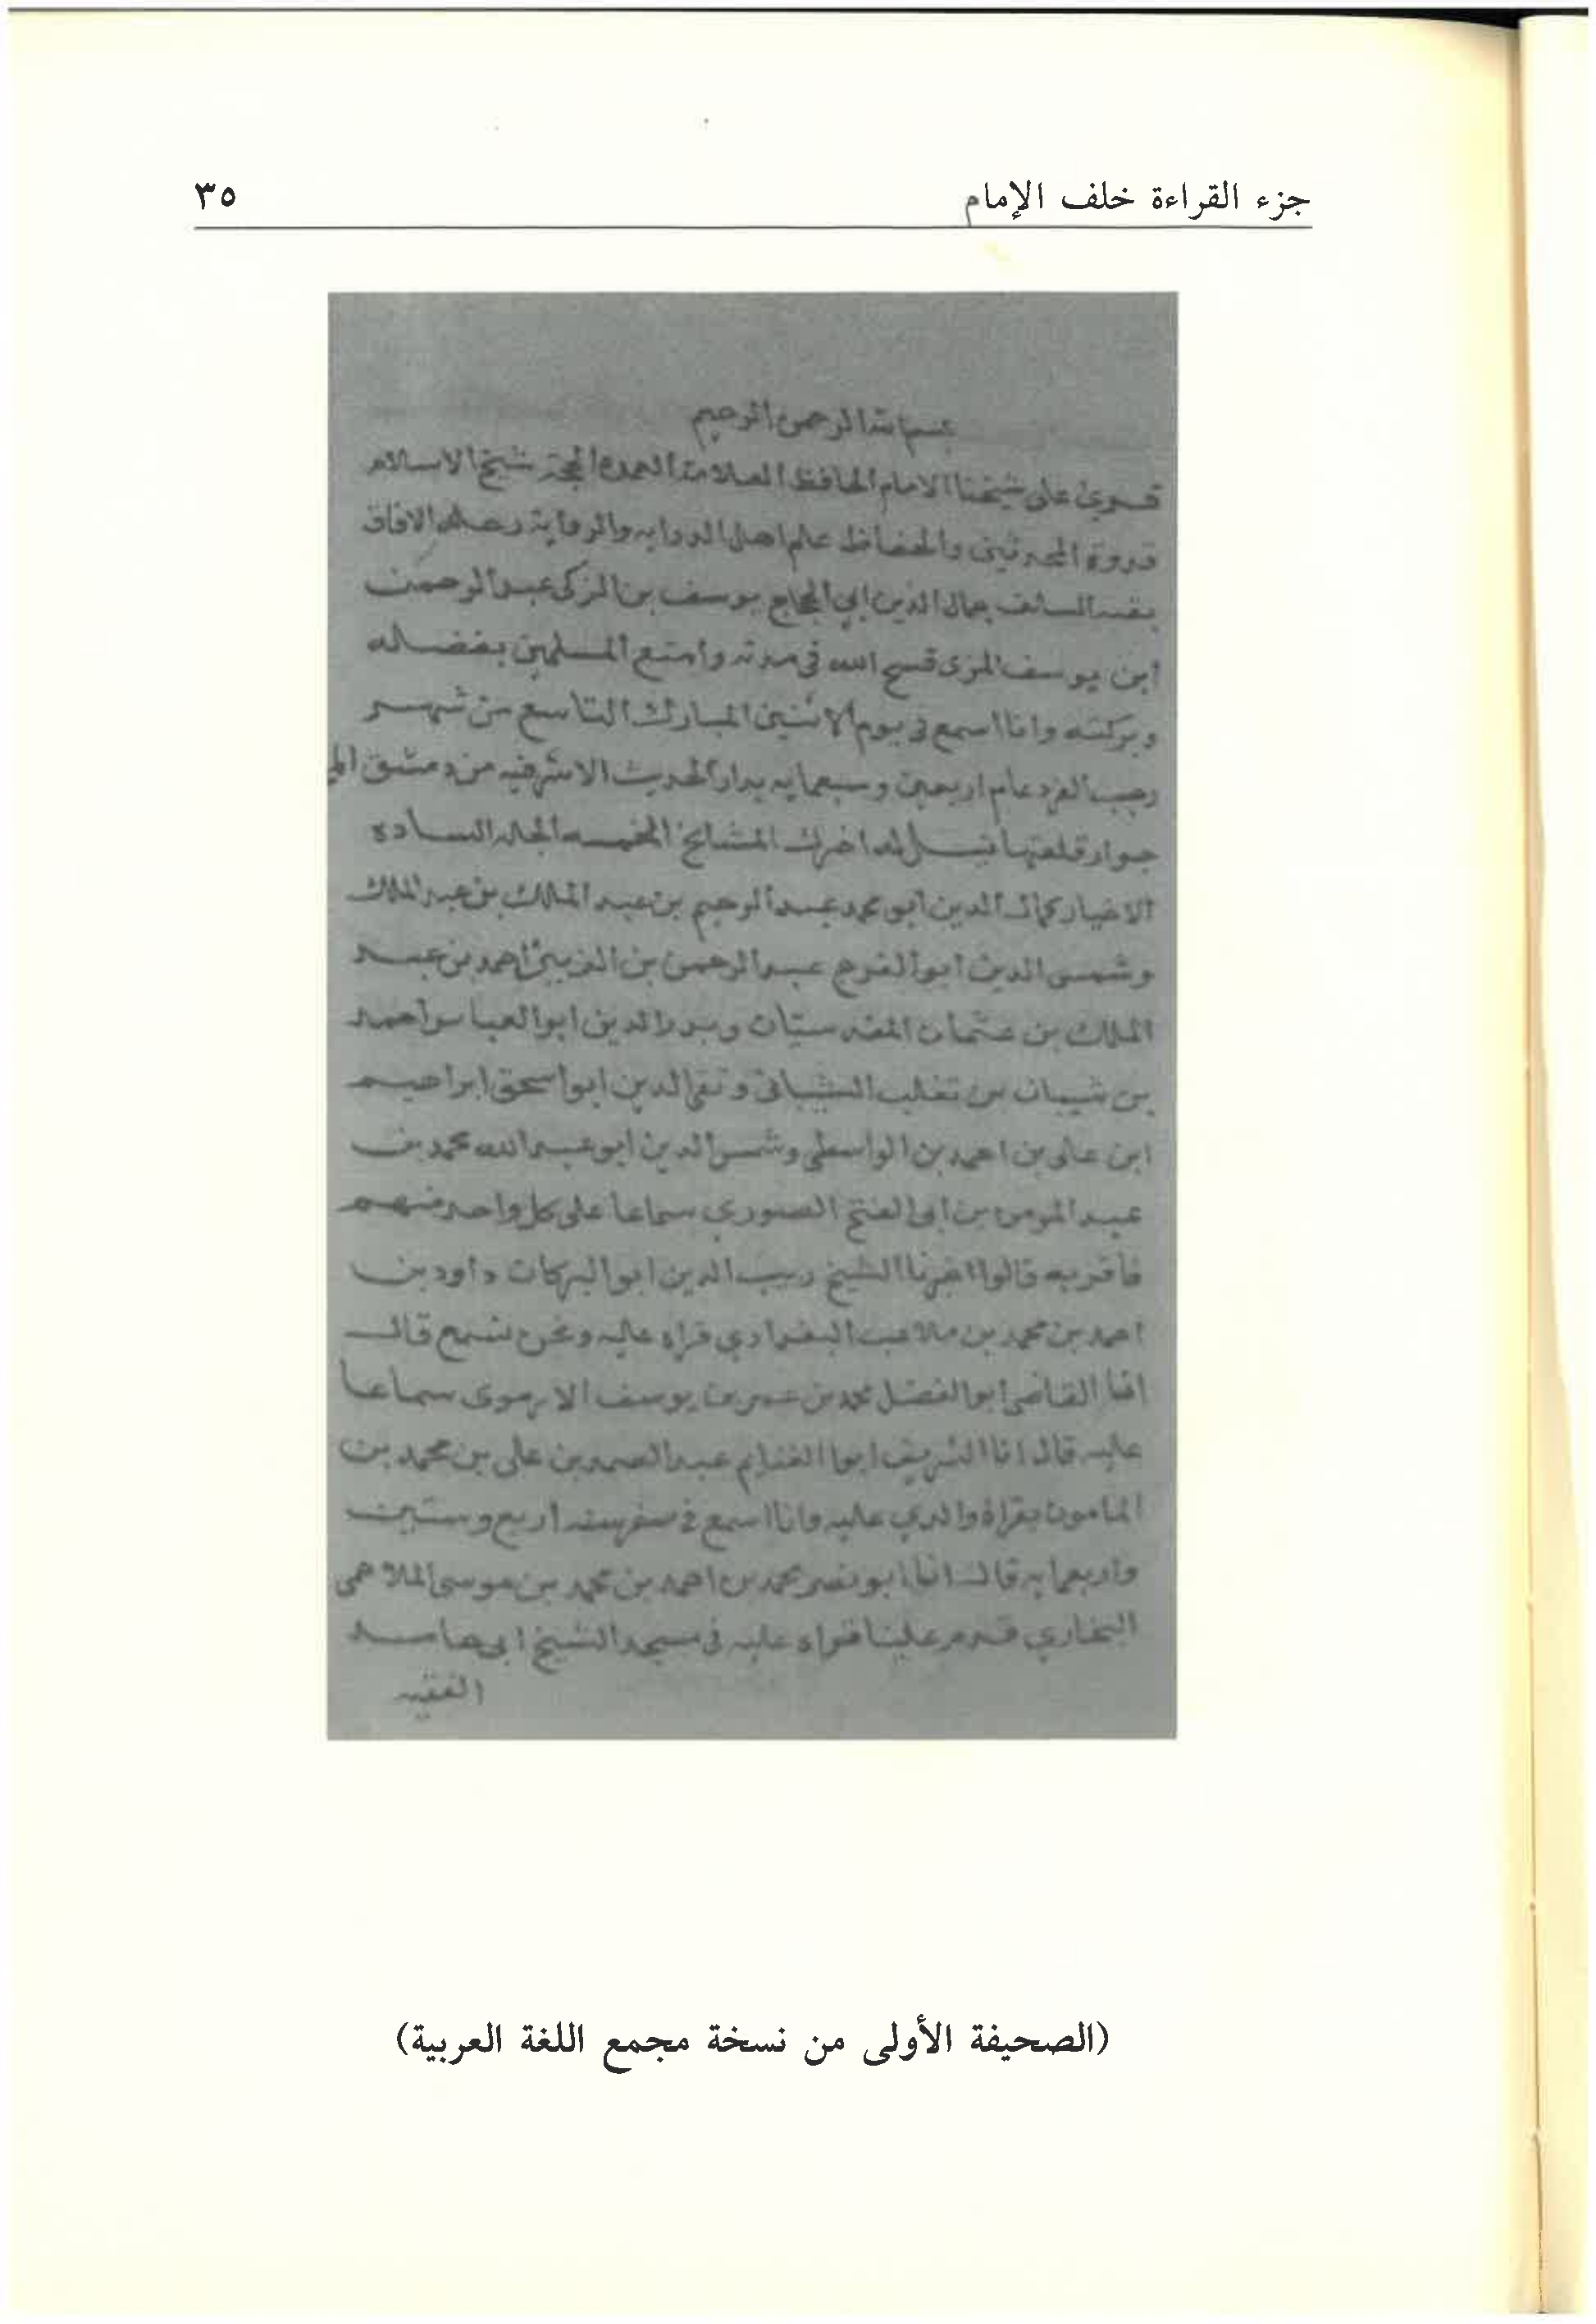 جزء القراءة خلف الإمام
٣٥
بسم الله الرحمن الرحيم
قرئ على شيخنا الامام الحافظ العلامة العمدة الحجة شيخ الاسلام
قدوة المحدثين والحفاظ علم اهل الدرايه والرواية رحلة الافاق
بقية السلف جمال الدين ابي الحجاج يوسف بن الزكى عبد الرحمن
ابن يوسف المزى فسح الله في مدته وامتع المسلمين بفضله
وبركته وانا اسمع في يوم الاثنين المبارك التاسع من شهر
رجب الفرد عام اربعين وسبعمايه بدار الحديث الاشرفيه من دمشق
جوار قلعتها قيل له اخبرك المشايخ الخمسه الجله الساده
الاخيار كمال الدين ابو محمد عبد الرحيم بن عبد الملك بن عبد الملك
وشمس الدين ابو الفرج عبد الرحمن بن الزين احمد بن عبد
الملك بن عثمان المقدسيان وبدر الدين ابو العباس احمد
بن شيبان بن تغلب الشيبانى وتقى الدين ابو اسحق ابراهيم
ابن على بن احمد بن الواسطى وشمس الدين ابو عبد الله محمد بن
عبد المومن بن ابى الفتح الصوري سماعا على كل واحد منهم
فاقر به قالوا اخبرنا الشيخ ربيب الدين ابو البركات داود بن
احمد بن محمد بن ملاعب البغدادي قراه عليه ونحن نسمع قال
انا القاضى ابو الفضل محمد بن عمر بن يوسف الارموى سماعا
عليه قال انا الشريف ابو الغنايم عبد الصمد بن على بن محمد بن
المامون بقراة والدي عليه وانا اسمع في صفر سنه اربع وستين
واربعمايه قال انا ابو نصر محمد بن احمد بن محمد بن موسى الملاحمى
البخاري قدم علينا قراه عليه في مسجد الشيخ ابى حامد
الفقيه
(الصحيفة الأولى من نسخة مجمع اللغة العربية)